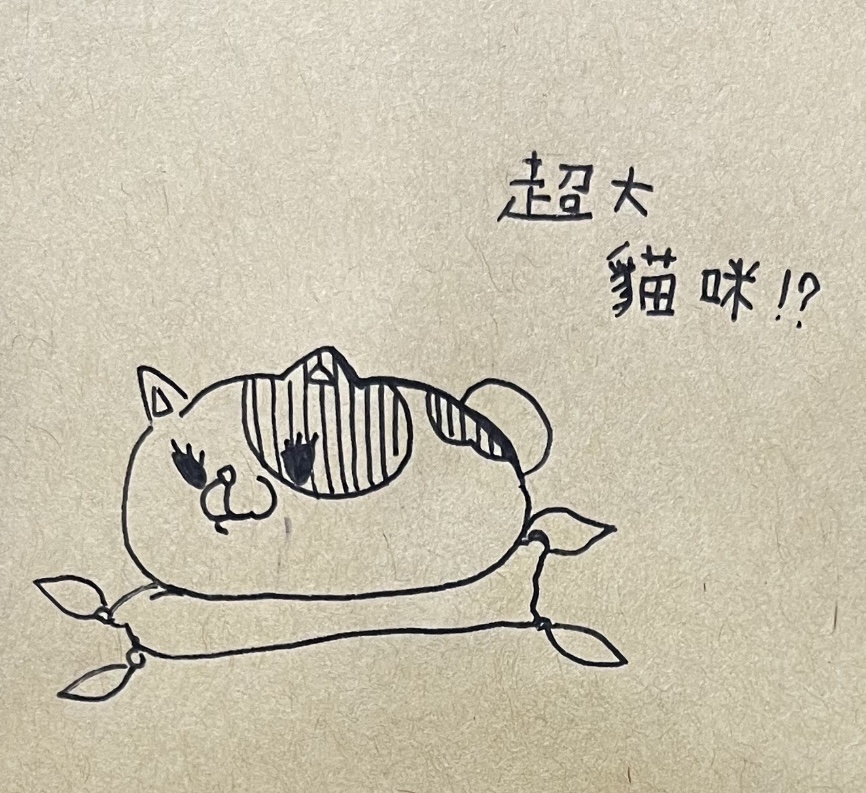 超大
貓咪!?